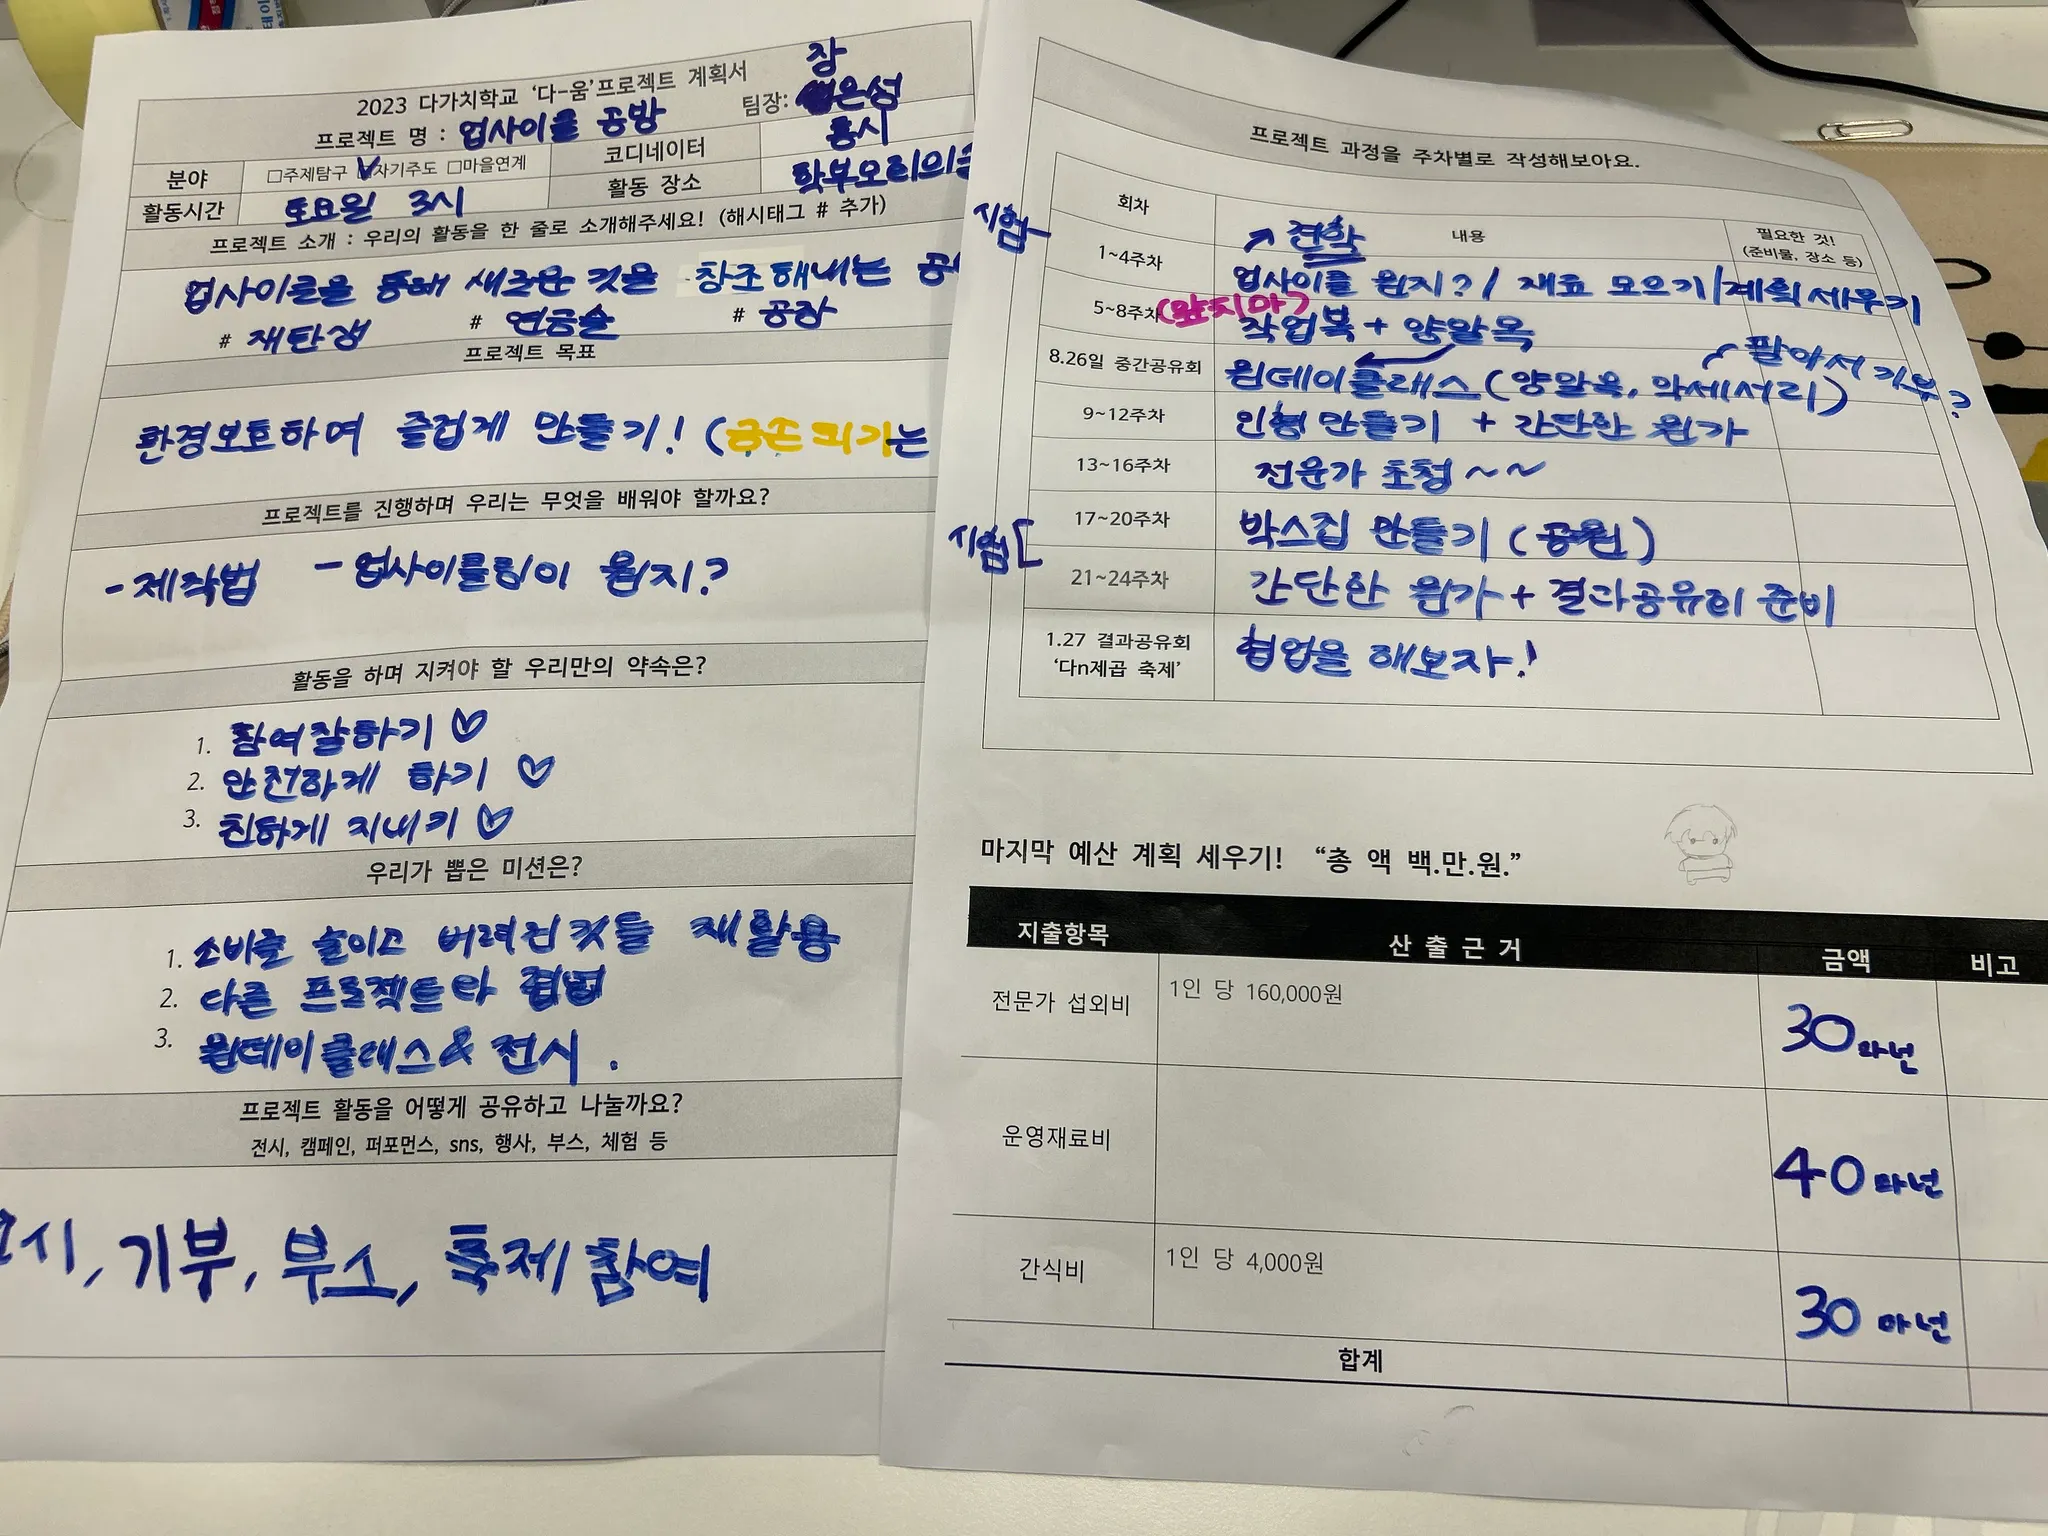 2023 다가치학교 '다-움'프로젝트 계획서
장
프로젝트 명 : 업사이클 공방
팀장: 은성
분야
□주제탐구 ☑자기주도 □마을연계
코디네이터
홍시
활동시간
토요일 3시
활동 장소
학부오리의
프로젝트 소개 : 우리의 활동을 한 줄로 소개해주세요! (해시태그 # 추가)
업사이클을 통해 새로운 것을 창조해내는
# 재탄생 # 연금술 # 공장
프로젝트 목표
환경보호하며 즐겁게 만들기! (금손되기는
프로젝트를 진행하며 우리는 무엇을 배워야 할까요?
- 제작법 - 업사이클링이 뭔지?
활동을 하며 지켜야 할 우리만의 약속은?
1. 참여잘하기 ♡
2. 안전하게 하기 ♡
3. 친하게 지내기 ♡
우리가 뽑은 미션은?
1. 소비로 줄이고 버려진것들 재활용
2. 다른 프로젝트와 협업
3. 원데이클래스 & 전시.
프로젝트 활동을 어떻게 공유하고 나눌까요?
전시, 캠페인, 퍼포먼스, sns, 행사, 부스, 체험 등
시, 기부, 부스, 축제참여
프로젝트 과정을 주차별로 작성해보아요.
회차
내용
필요한 것!
(준비물, 장소 등)
시험
1~4주차
↗ 견학
업사이클 뭔지? / 재료 모으기 / 계획세우기
5~8주차
(앞치마)
작업복 + 양말목
8.26일 중간공유회
원데이클래스 (양말목, 악세서리)
팔아서 기부?
9~12주차
인형 만들기 + 간단한 뭔가
13~16주차
전문가 초청 ~~
시험
17~20주차
박스집 만들기 (공원)
21~24주차
간단한 뭔가 + 결과공유회 준비
1.27 결과공유회
'다n제곱 축제'
협업을 해보자!
마지막 예산 계획 세우기! “총 액 백.만.원.”
지출항목 산 출 근 거 금액 비고
전문가 섭외비 1인 당 160,000원 30마넌
운영재료비 40마넌
간식비 1인 당 4,000원 30마넌
합계